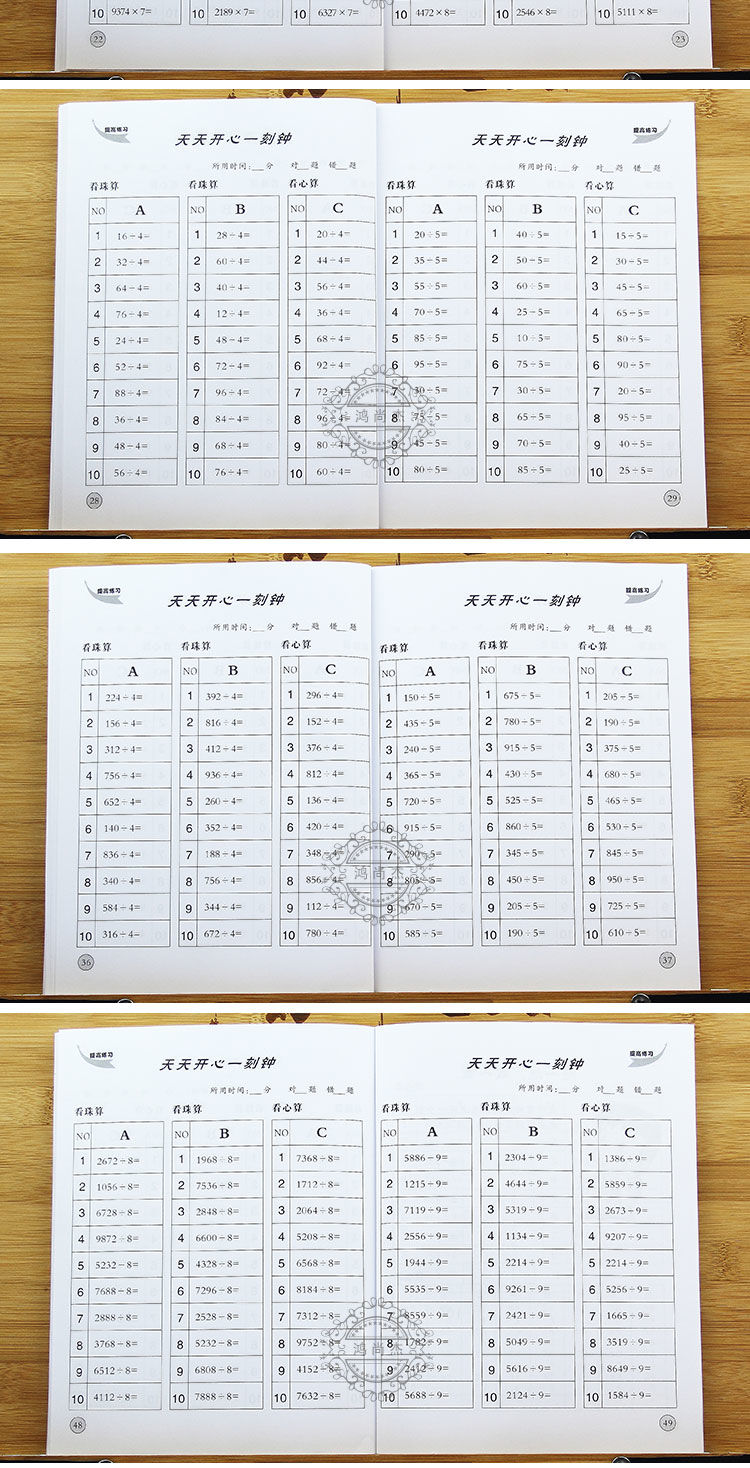 10 9374×7= 10 2189×7= 10 6327×7=
22
10 4472×8= 10 2546×8= 10 5111×8=
23
提高练习
天天开心一刻钟
所用时间:__分 对__题 错__题
看珠算 看珠算 看心算
NO A NO B NO C
1 16÷4= 1 28÷4= 1 20÷4=
2 32÷4= 2 60÷4= 2 44÷4=
3 64÷4= 3 40÷4= 3 56÷4=
4 76÷4= 4 12÷4= 4 36÷4=
5 24÷4= 5 48÷4= 5 68÷4=
6 52÷4= 6 72÷4= 6 92÷4=
7 88÷4= 7 96÷4= 7 72÷4=
8 36÷4= 8 84÷4= 8 96÷4=
9 48÷4= 9 68÷4= 9 80÷4=
10 56÷4= 10 76÷4= 10 60÷4=
28
提高练习
天天开心一刻钟
所用时间:__分 对__题 错__题
看珠算 看珠算 看心算
NO A NO B NO C
1 20÷5= 1 40÷5= 1 15÷5=
2 35÷5= 2 50÷5= 2 30÷5=
3 55÷5= 3 60÷5= 3 45÷5=
4 70÷5= 4 25÷5= 4 65÷5=
5 85÷5= 5 10÷5= 5 80÷5=
6 95÷5= 6 75÷5= 6 90÷5=
7 30÷5= 7 30÷5= 7 20÷5=
8 75÷5= 8 65÷5= 8 95÷5=
9 45÷5= 9 70÷5= 9 40÷5=
10 80÷5= 10 85÷5= 10 25÷5=
29
鸿尚杰
提高练习
天天开心一刻钟
所用时间:__分 对__题 错__题
看珠算 看珠算 看心算
NO A NO B NO C
1 224÷4= 1 392÷4= 1 296÷4=
2 156÷4= 2 816÷4= 2 152÷4=
3 312÷4= 3 412÷4= 3 376÷4=
4 756÷4= 4 936÷4= 4 812÷4=
5 652÷4= 5 260÷4= 5 136÷4=
6 140÷4= 6 352÷4= 6 420÷4=
7 836÷4= 7 188÷4= 7 348÷4=
8 340÷4= 8 756÷4= 8 856÷4=
9 584÷4= 9 344÷4= 9 112÷4=
10 316÷4= 10 672÷4= 10 780÷4=
36
提高练习
天天开心一刻钟
所用时间:__分 对__题 错__题
看珠算 看珠算 看心算
NO A NO B NO C
1 150÷5= 1 675÷5= 1 205÷5=
2 435÷5= 2 780÷5= 2 190÷5=
3 240÷5= 3 915÷5= 3 375÷5=
4 365÷5= 4 430÷5= 4 680÷5=
5 720÷5= 5 525÷5= 5 465÷5=
6 915÷5= 6 860÷5= 6 530÷5=
7 290÷5= 7 345÷5= 7 845÷5=
8 805÷5= 8 450÷5= 8 950÷5=
9 670÷5= 9 205÷5= 9 725÷5=
10 585÷5= 10 190÷5= 10 610÷5=
37
鸿尚杰
提高练习
天天开心一刻钟
所用时间:__分 对__题 错__题
看珠算 看珠算 看心算
NO A NO B NO C
1 2672÷8= 1 1968÷8= 1 7368÷8=
2 1056÷8= 2 7536÷8= 2 1712÷8=
3 6728÷8= 3 2848÷8= 3 2064÷8=
4 9872÷8= 4 6600÷8= 4 5208÷8=
5 5232÷8= 5 4328÷8= 5 6568÷8=
6 7688÷8= 6 7296÷8= 6 8184÷8=
7 2888÷8= 7 2528÷8= 7 7312÷8=
8 3768÷8= 8 5232÷8= 8 9752÷8=
9 6512÷8= 9 6808÷8= 9 4152÷8=
10 4112÷8= 10 7888÷8= 10 7632÷8=
48
提高练习
天天开心一刻钟
所用时间:__分 对__题 错__题
看珠算 看珠算 看心算
NO A NO B NO C
1 5886÷9= 1 2304÷9= 1 1386÷9=
2 1215÷9= 2 4644÷9= 2 5859÷9=
3 7119÷9= 3 5319÷9= 3 2673÷9=
4 2556÷9= 4 1134÷9= 4 9207÷9=
5 1944÷9= 5 2214÷9= 5 2214÷9=
6 5535÷9= 6 9261÷9= 6 5256÷9=
7 8559÷9= 7 2421÷9= 7 1665÷9=
8 1782÷9= 8 5049÷9= 8 3519÷9=
9 2412÷9= 9 5616÷9= 9 8649÷9=
10 5688÷9= 10 2124÷9= 10 1584÷9=
49
鸿尚杰